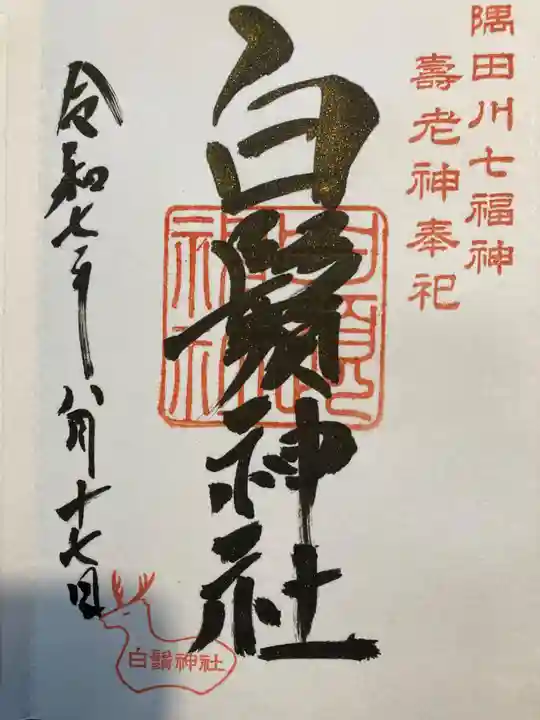 隅田川七福神
壽老神奉祀
白鬚神社
令和七年八月十七日
白鬚神社